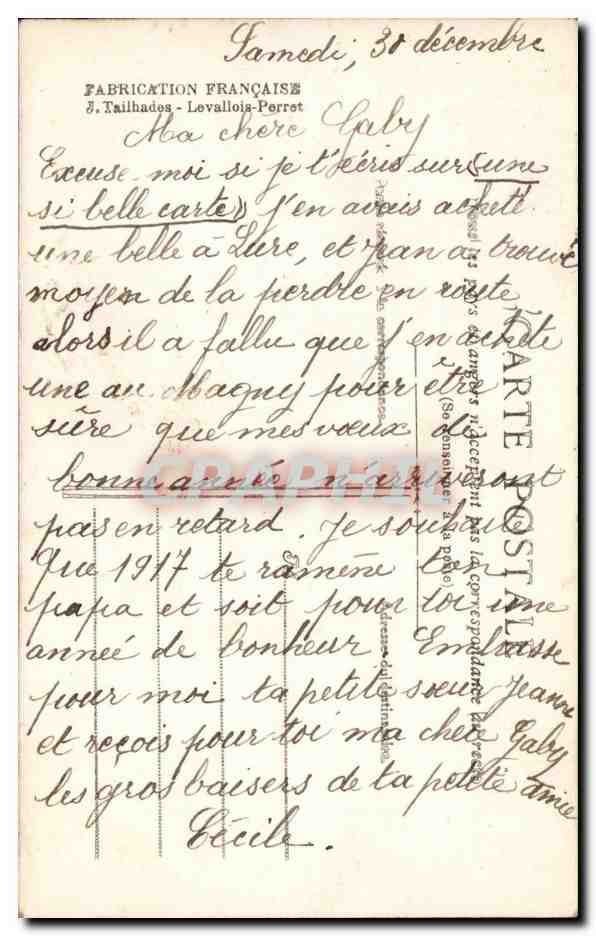 Samedi, 30 décembre
FABRICATION FRANÇAISE
J. Tailhades - Levallois-Perret
Ma chère Gaby
Excuse-moi si je t'écris sur (une
si belle carte) j'en avais acheté
une belle à Lure, et Jean a trouvé
moyen de la perdre en route,
alors il a fallu que j'en achète
une au Magny pour être
sûre que mes vœux de
bonne année n'arriveront
pas en retard. Je souhaite
que 1917 te ramène ton
papa et soit pour toi une
année de bonheur. Embrasse
pour moi ta petite sœur Jeanne
et reçois pour toi ma chère Gaby
les gros baisers de ta petite amie
Cécile.
CARTE POSTALE
pays étrangers n'acceptent pas la correspondance au recto
(Se renseigner à la poste)
correspondance
Adresse du destinataire
CPAPHIL